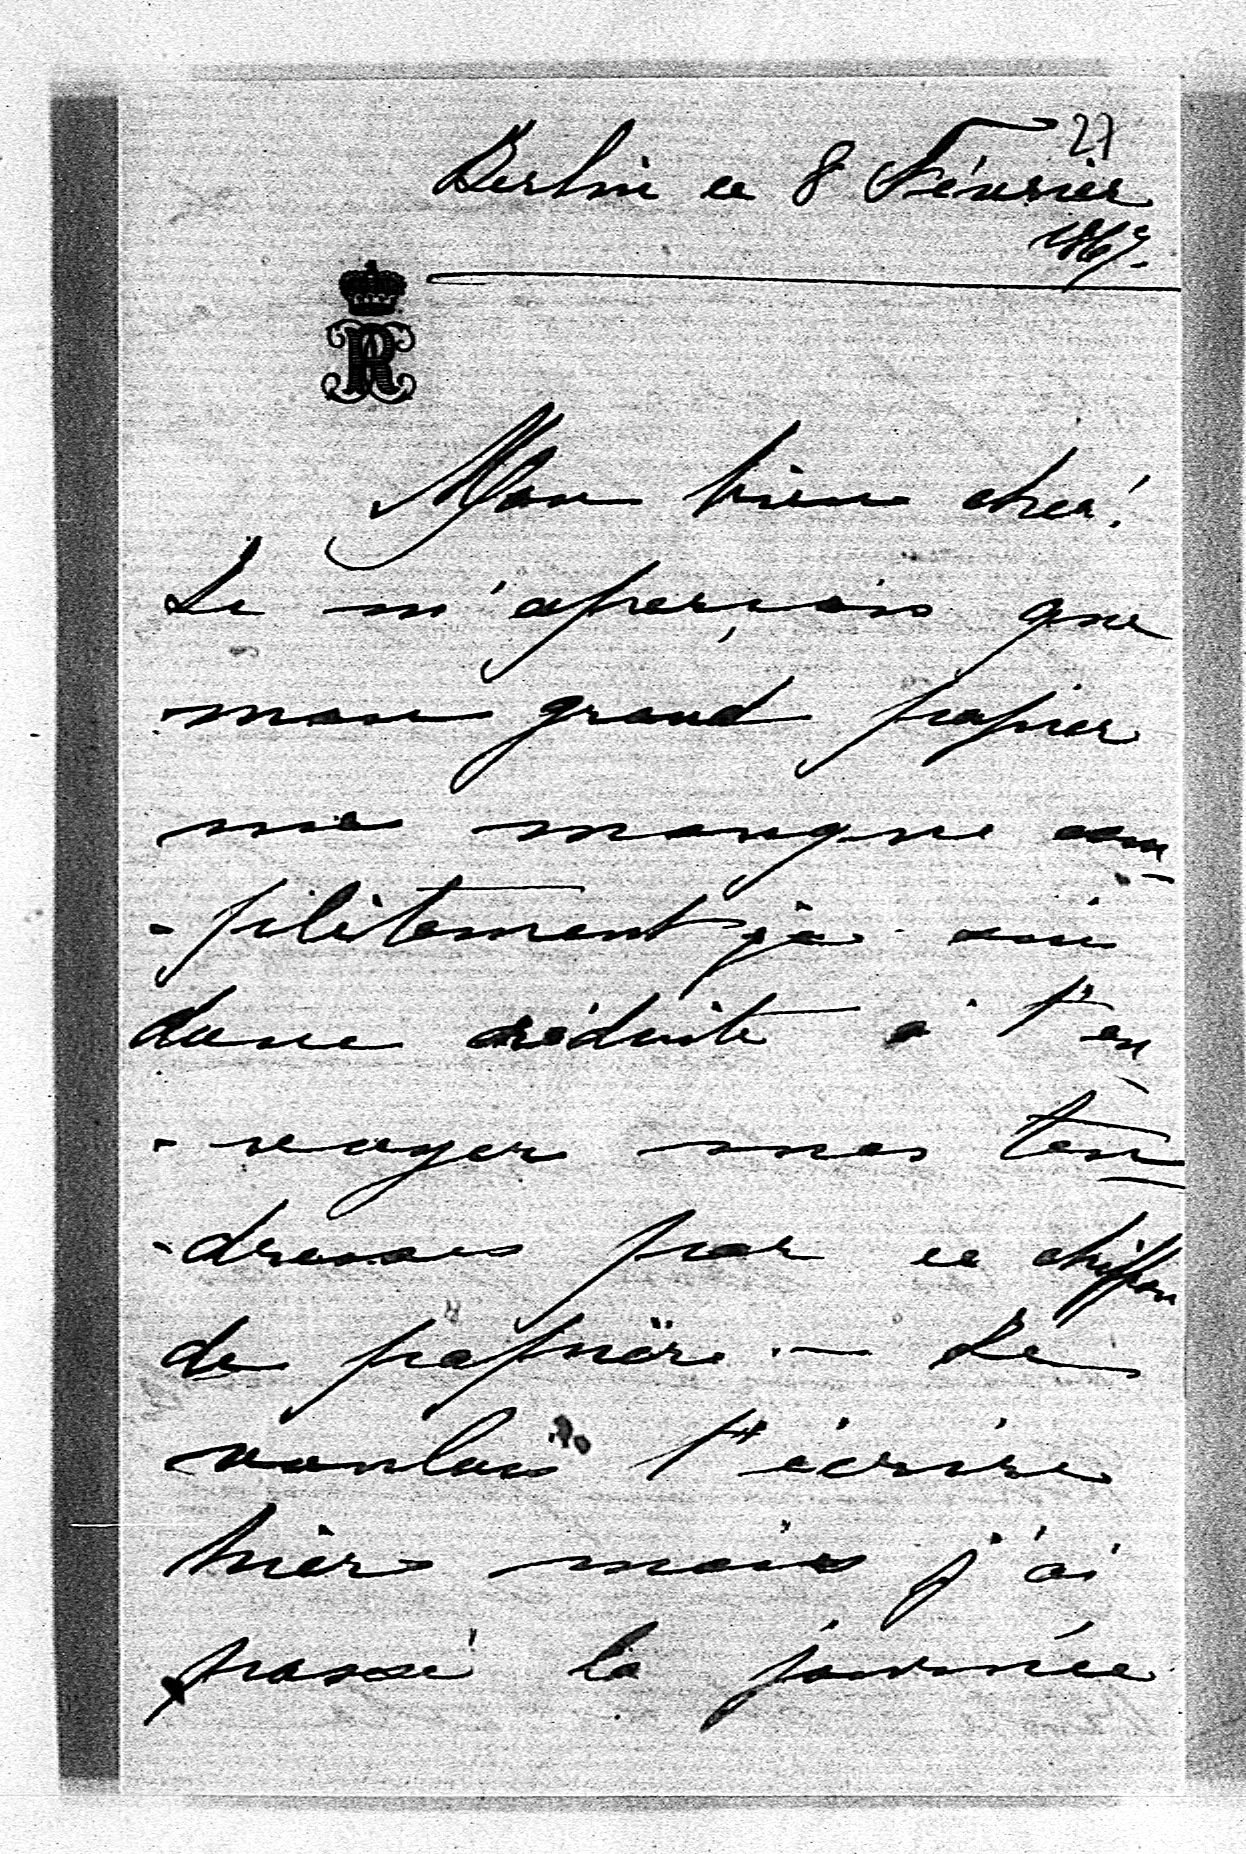 27
Berlin ce 8 Février
1867.
R
Mon bien cher!
Je m'aperçois que
mon grand papier
me manque com
-plètement je suis
donc réduite à t'en
-voyer mes ten
-dresses par ce chiffon
de papier. — Je
voulais t'écrire
hier mais j'ai
passé la journée